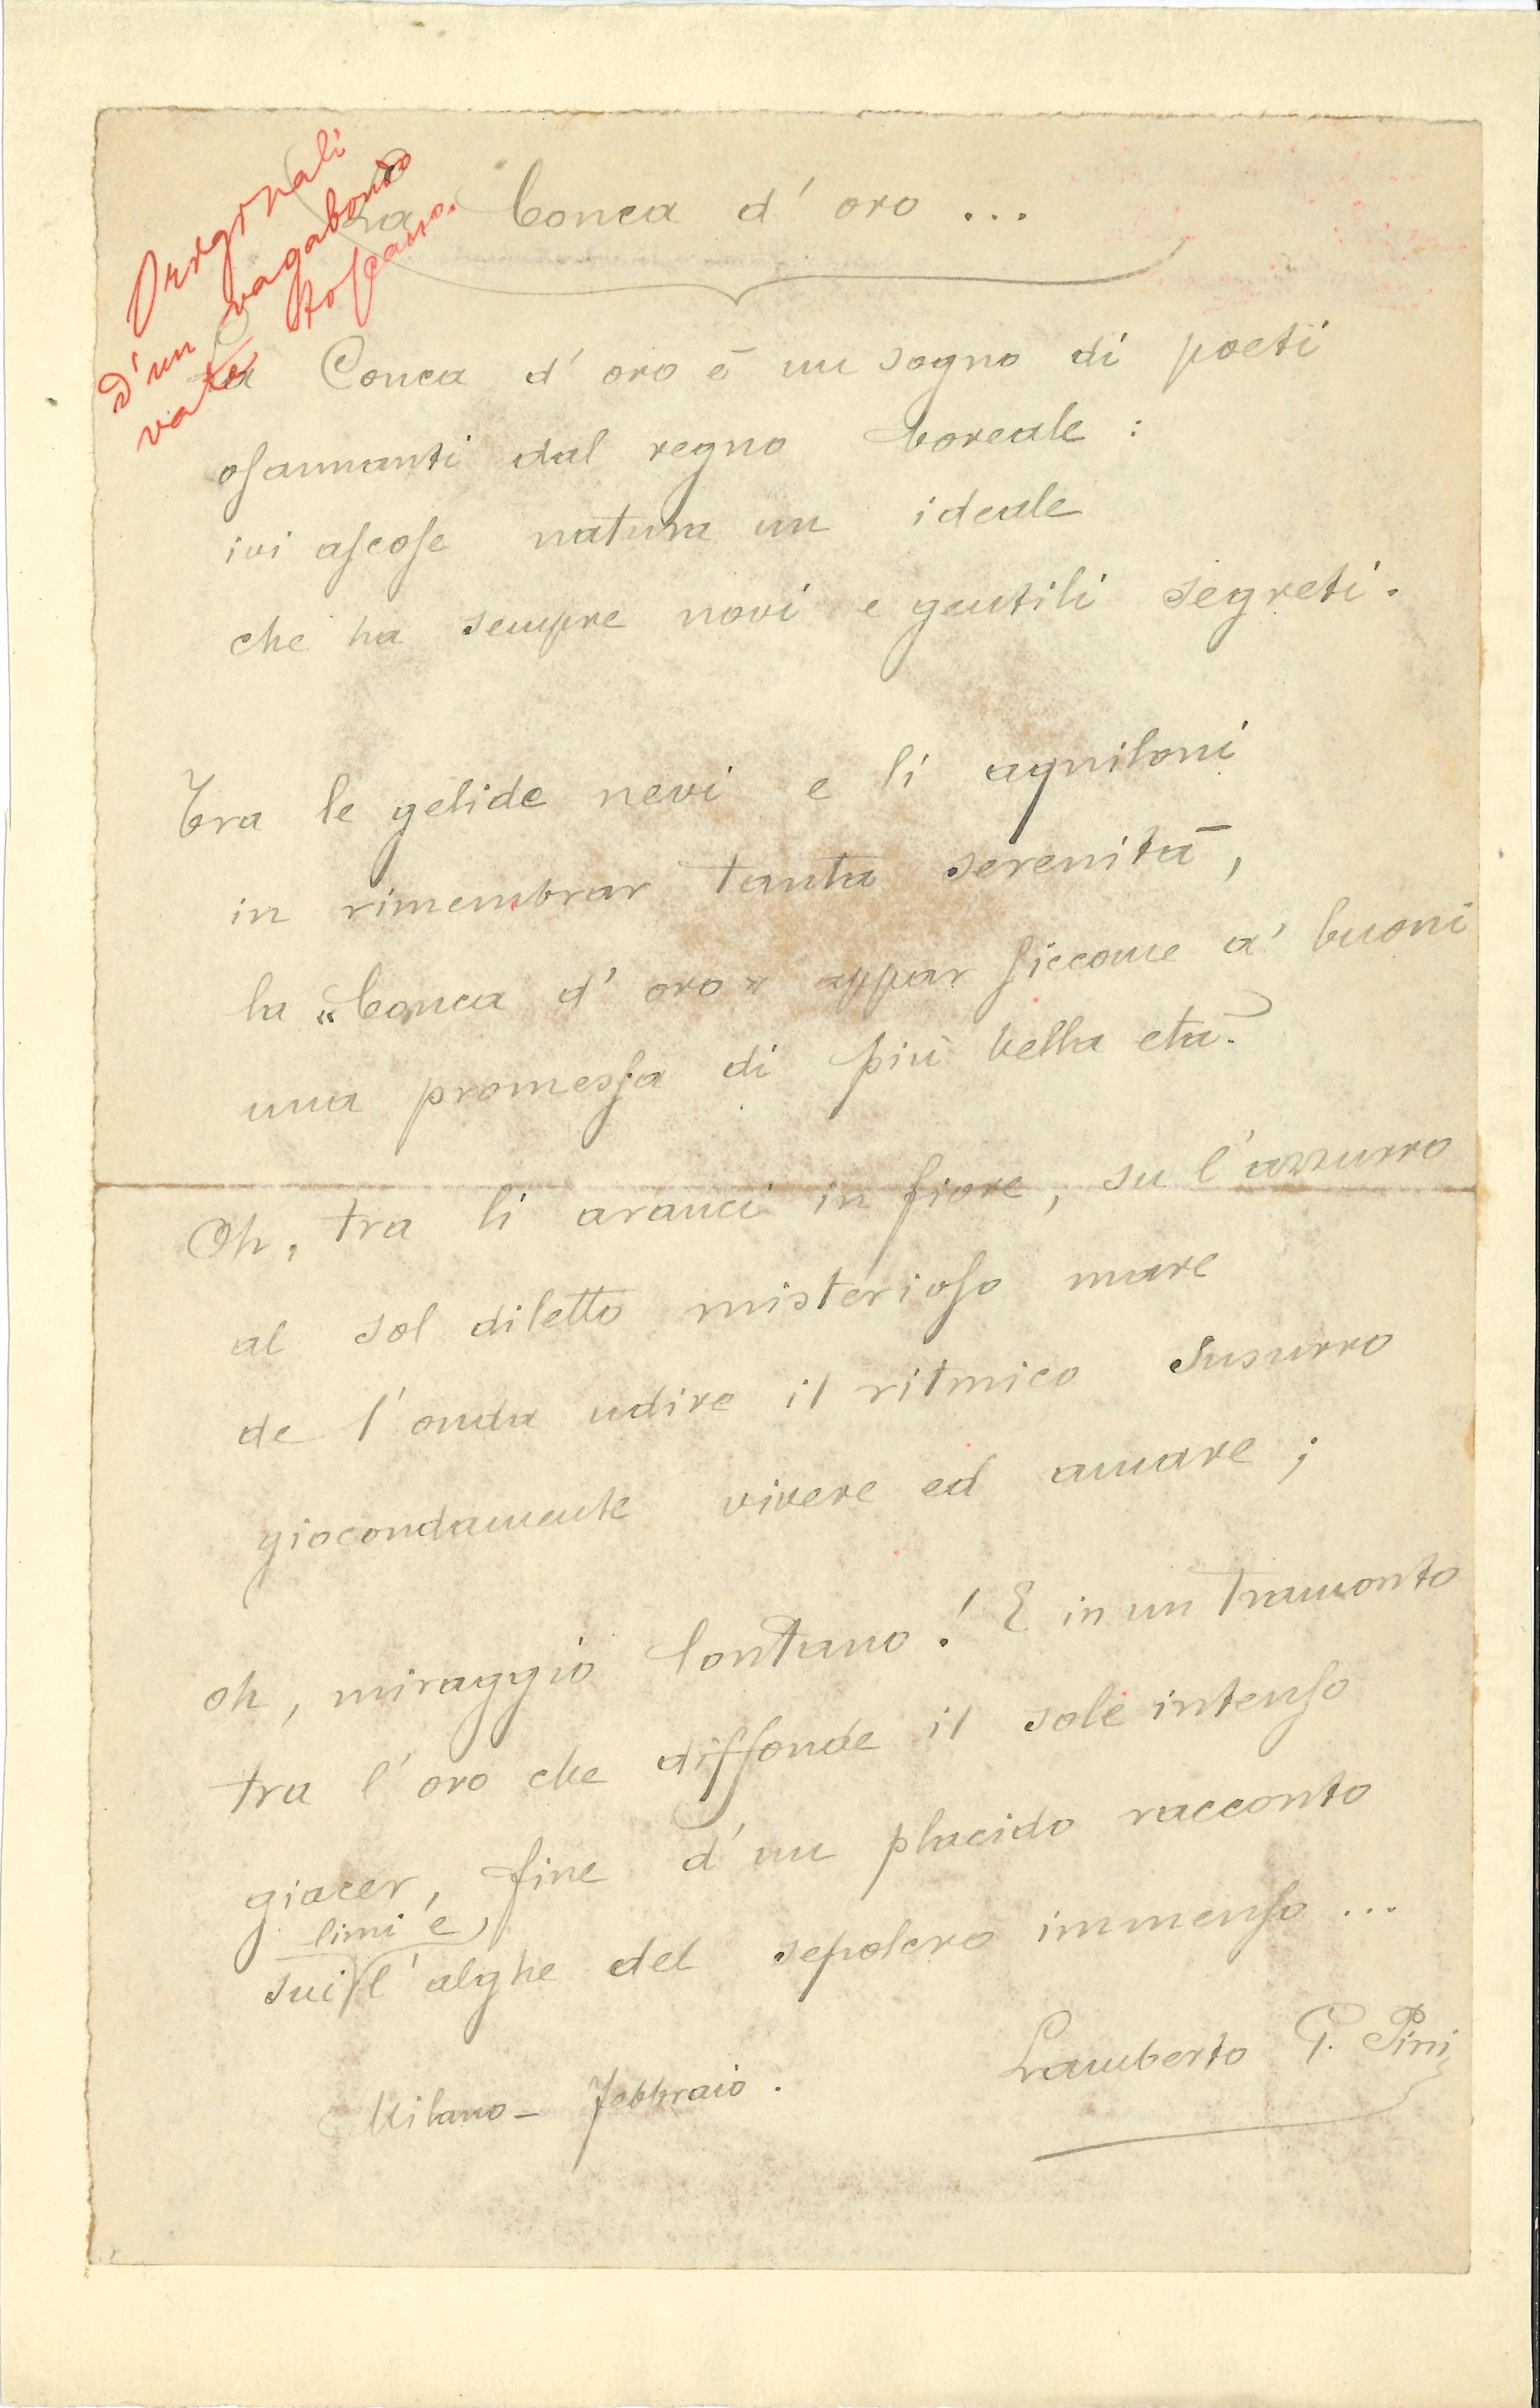 Originali
d'un vagabondo
vate toscano.
La Conca d'oro ...
La Conca d'oro è un sogno di poeti
osannanti dal regno boreale :
ivi ascose natura un ideale
che ha sempre novi e gentili segreti.
Tra le gelide nevi e li aquiloni
in rimembrar tanta serenità,
la „Conca d'oro" appar siccome a' buoni
una promessa di più bella età.
Oh, tra li aranci in fiore, su l'azzurro
al sol diletto misterioso mare
de l'onda udire il ritmico susurro
giocondamente vivere ed amare ;
oh, miraggio lontano! E in un tramonto
tra l'oro che diffonde il sole intenso
giacer, fine d'un placido racconto
limi e
sui l'alghe del sepolcro immenso ...
Milano - Febbraio.
Lamberto G. Pini